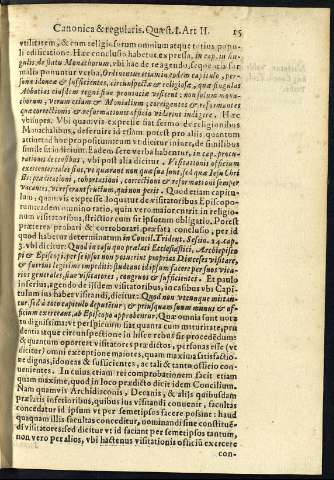 Canonica & regularis. Quæst. I. Art II. 15
vtilitatem, & cum religiosorum omnium atque totius popu-
li ædificatione. Hæc conclusio habetur expressa, in cap. in sin-
gulis. de statu Monachorum, vbi hac de re agendo, sequentia for-
malia ponuntur verba, Ordinentur etiam in eodem capitulo, per-
sonæ idoneæ & sufficientes, circunspectæ & religiosæ, quæ singulas
Abbatias eiusdem regni siue prouinciæ visitent, non solum mona-
chorum, verum etiam & Monialium; corrigentes & reformantes
quæ correctionis & reformationis officio viderint indigere. Hæc
vbi supra. Vbi quamvis expresse fiat sermo de religiosibus
Monachalibus, deseruire id etiam potest pro aliis quantum
attinet ad hoc propositum vt dicitur inde, de similibus
simile fit iudicium. Eadem fere verba habentur, in cap. procu-
rationes de censibus, vbi post alia dicitur. Visitationis officium
exercentes tales sint, vt quærant non quæ sua sunt, sed quæ Iesu Chri
sti: prædicationi, cohortationi, correctioni & reformationi semper
vacantes, vt referant fructum, qui non perit. Quod etiam capitu-
lum, quamvis expresse loquitur de visitatoribus Episcopo-
rum eadem nimirum ratio, quin vero maior currit in religio-
num visitatoribus, strictior cum sit ipsorum obligatio. Potest
præterea probari & corroborari præfata conclusio, per id
quod habetur determinatum in Concil. Trident. Sessio. 24. cap.
3. vbi dicitur: Quod in casu quo prælati Ecclesiastici, Archiepisco
pi & Episcopi, per se ipsos non poterint proprias Diœceses visitare,
& fuerint legitime impediti: studeant id ipsum facere per suos vica-
rios generales, siue visitatores, congruos & sufficientes. Et paulo
inferius, agendo de iisdem visitatoribus, in casibus vbi Capi-
tulum ius habet visitandi, dicitur: Quod non vtcunque mittan-
tur, sed à dicto capitulo deputetur, & prius quam suum munus & of-
ficium exerceant, ab Episcopo approbentur. Quæ omnia sunt nota
tu dignissima; vt perspicuum fiat quanta cum maturitate, pru
dentia atque circunspectione in hisce rebus sit procedendum
& quantum oporteat visitatores prædictos, personas esse (vt
dicitur) omni exceptione maiores, quam maxima satisfactio-
ne dignas, idoneas & sufficientes, ac tali & tanto officio con-
uenientes. In cuius etiam rei comprobationem facit etiam
quam maxime, quod in loco prædicto dicit idem Concilium.
Nam quamvis Archidiaconis, Decanis, & aliis quibusdam
prælatis inferioribus, quibus ius visitandi conuenit, facultas
concedatur id ipsum vt per semetipsos facere possint: haud
quaquam illis facultas conceditur, nominandi siue constitué-
di visitatores: sed dicitur vt id faciant per semetipsos tantum,
non vero per alios, vbi hactenus visitationis officium exercere
con-